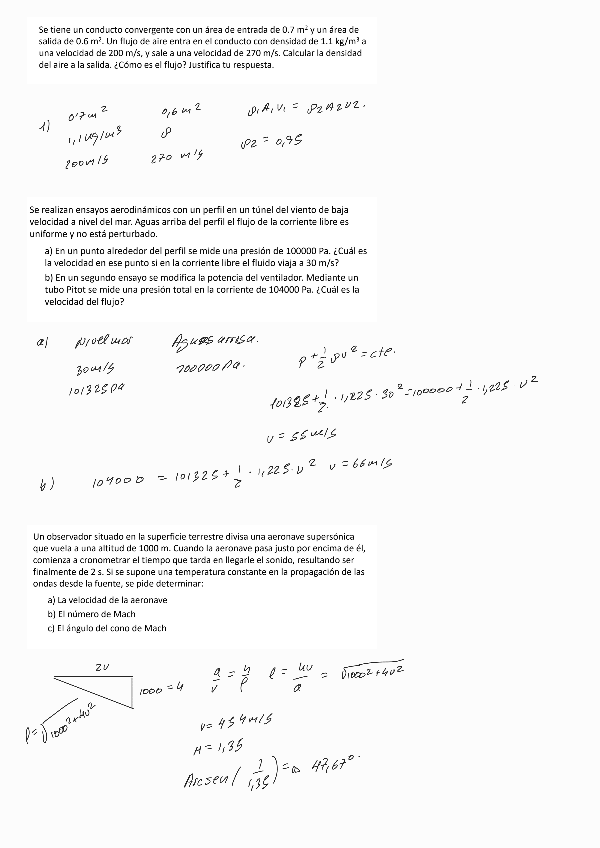 Se tiene un conducto convergente con un área de entrada de 0.7 m² y un área de
salida de 0.6 m². Un flujo de aire entra en el conducto con densidad de 1.1 kg/m³ a
una velocidad de 200 m/s, y sale a una velocidad de 270 m/s. Calcular la densidad
del aire a la salida. ¿Cómo es el flujo? Justifica tu respuesta.
1) 0'7m² 0,6m² ρ₁A₁V₁ = ρ2A2V2.
1,1kg/m³ ρ ρ2 = 0,95
200m/s 270 m/s
Se realizan ensayos aerodinámicos con un perfil en un túnel del viento de baja
velocidad a nivel del mar. Aguas arriba del perfil el flujo de la corriente libre es
uniforme y no está perturbado.
a) En un punto alrededor del perfil se mide una presión de 100000 Pa. ¿Cuál es
la velocidad en ese punto si en la corriente libre el fluido viaja a 30 m/s?
b) En un segundo ensayo se modifica la potencia del ventilador. Mediante un
tubo Pitot se mide una presión total en la corriente de 104000 Pa. ¿Cuál es la
velocidad del flujo?
a) Nivel mar Aguas arriba.
30m/s 100000Pa. P + 1/2 ρv² = cte.
101325Pa
101325 + 1/2 · 1,225 · 30² = 100000 + 1/2 · 1,225 v²
v = 55m/s
b) 104000 = 101325 + 1/2 · 1,225 · v² v = 66m/s
Un observador situado en la superficie terrestre divisa una aeronave supersónica
que vuela a una altitud de 1000 m. Cuando la aeronave pasa justo por encima de él,
comienza a cronometrar el tiempo que tarda en llegarle el sonido, resultando ser
finalmente de 2 s. Si se supone una temperatura constante en la propagación de las
ondas desde la fuente, se pide determinar:
a) La velocidad de la aeronave
b) El número de Mach
c) El ángulo del cono de Mach
2v
1000 = h a/v = h/l l = hv/a = √1000² + 4v²
l = √1000² + 4v²
v = 454m/s
M = 1,35
Arcsen (1/1,35) = 47,67°.